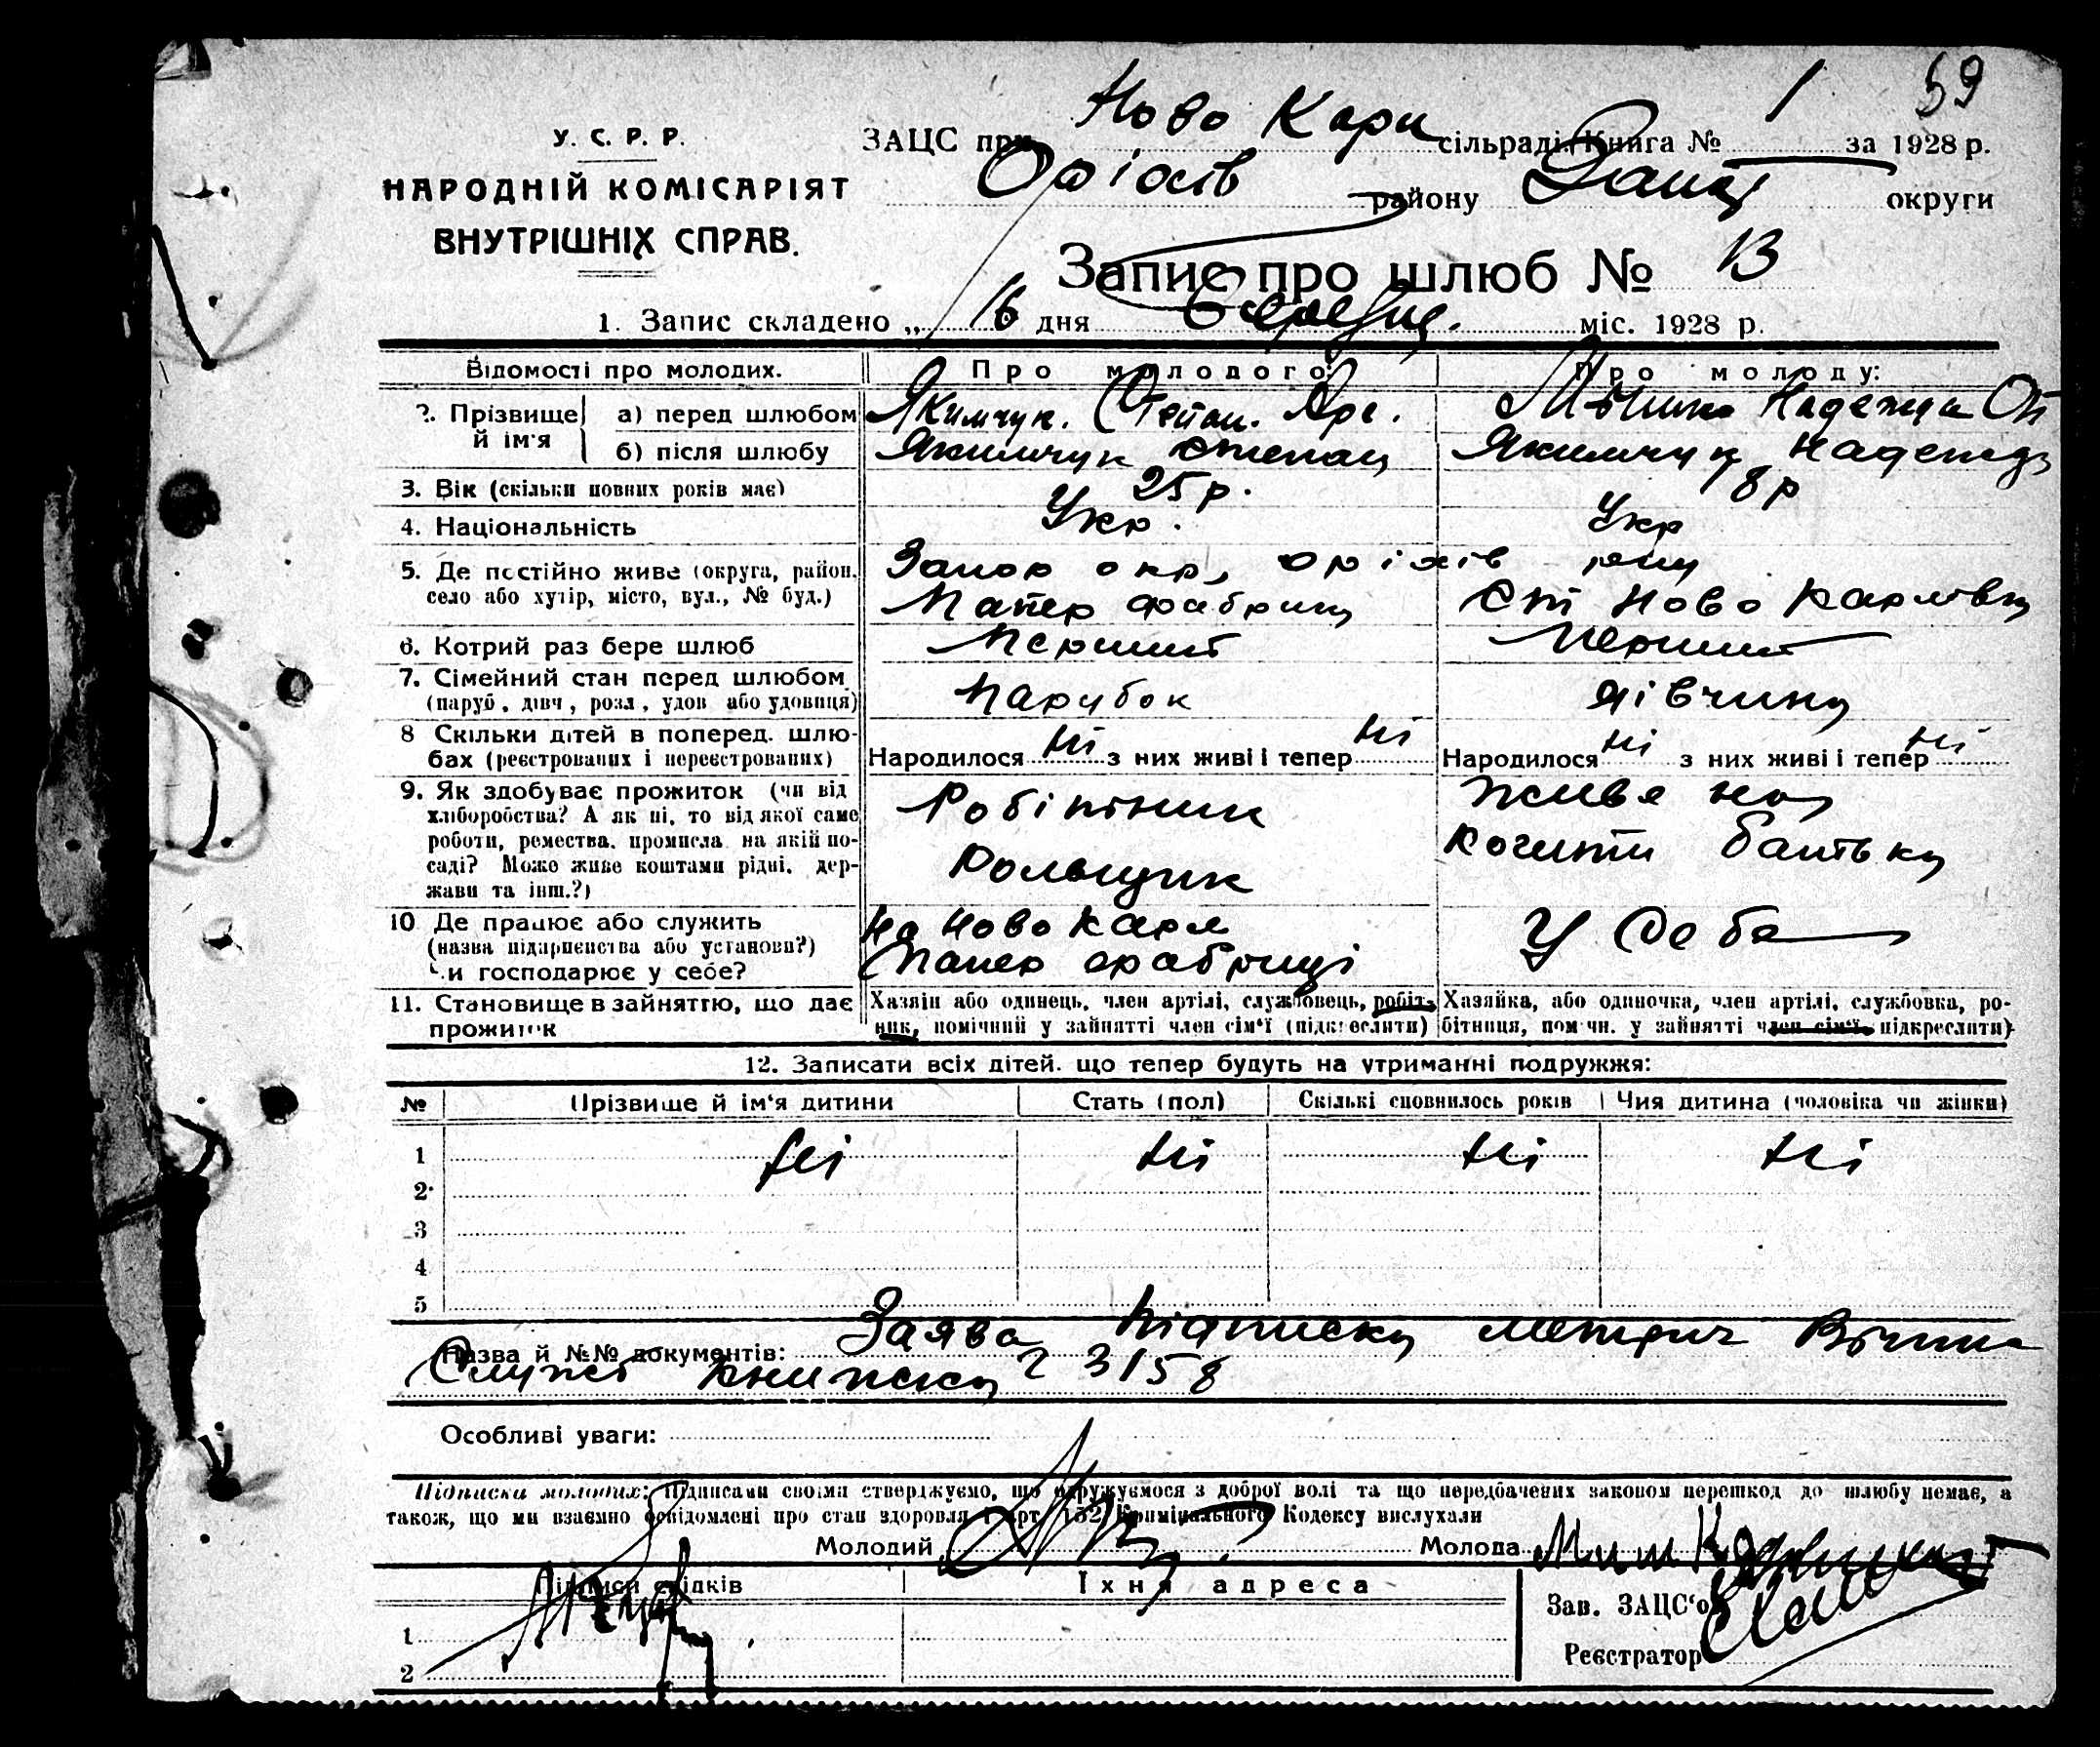 59
У. С. Р. Р.
НАРОДНІЙ КОМІСАРІЯТ
ВНУТРІШНІХ СПРАВ.
ЗАЦС при Ново Карл сільраді Книга № 1 за 1928 р.
Оріхів району Запор округи
Запис про шлюб № 13
1. Запис складено „ 16 дня міс. 1928 р.
Відомості про молодих. Про молодого: Про молоду:
2. Прізвище й ім'я а) перед шлюбом Якимчук. Степан. Надежда
б) після шлюбу Якимчук Степан Якимчук Надежда
3. Вік (скільки повних років має) 25 р. 18 р
4. Національність Укр. Укр
5. Де постійно живе (округа, район, Запор окр, Оріхів рну
село або хутір, місто, вул., № буд.) Папер фабрика Ст Ново Карлівка
6. Котрий раз бере шлюб Перший Перший
7. Сімейний стан перед шлюбом Парубок дівчина
(паруб., дівч., розл., удов. або удовиця)
8 Скільки дітей в поперед. шлю-
бах (реєстрованих і нереєстрованих) Народилося ні з них живі і тепер ні Народилося ні з них живі і тепер ні
9. Як здобуває прожиток (чи від Робітник Живе на
хліборобства? А як ні, то від якої саме
роботи, ремества, промисла, на якій по- кошти батька
саді? Може живе коштами рідні, дер- Рольщик
жави та інш.?)
10 Де працює або служить На Ново Карл У себе
(назва підприємства або установи?) Папер фабриці
чи господарює у себе?
11. Становище в зайняттю, що дає Хазяїн або одинець, член артілі, службовець, робіт- Хазяйка, або одиночка, член артілі, службовка, ро-
прожиток ник, помічний у зайнятті член сім'ї (підкреслити) бітниця, помічн. у зайнятті член сім'ї, підкреслити)
12. Записати всіх дітей, що тепер будуть на утриманні подружжя:
№ Прізвище й ім'я дитини Стать (пол) Скількі сповнилось років Чия дитина (чоловіка чи жінки)
1 ні ні ні ні
2
3
4
5
Назва й №№ документів: Заява Підписка метрич
Служб книжка 3158
Особливі уваги:
Підписки молодих: Підписами своїми стверджуємо, що одружуємося з доброї волі та що передбачених законом перешкод до шлюбу немає, а
також, що ми взаємно освідомлені про стан здоровля і арт. 152 Кримінального Кодексу вислухали
Молодий Молода
Підписи свідків Їхня адреса
Зав. ЗАЦС'ом
1
Реєстратор
2